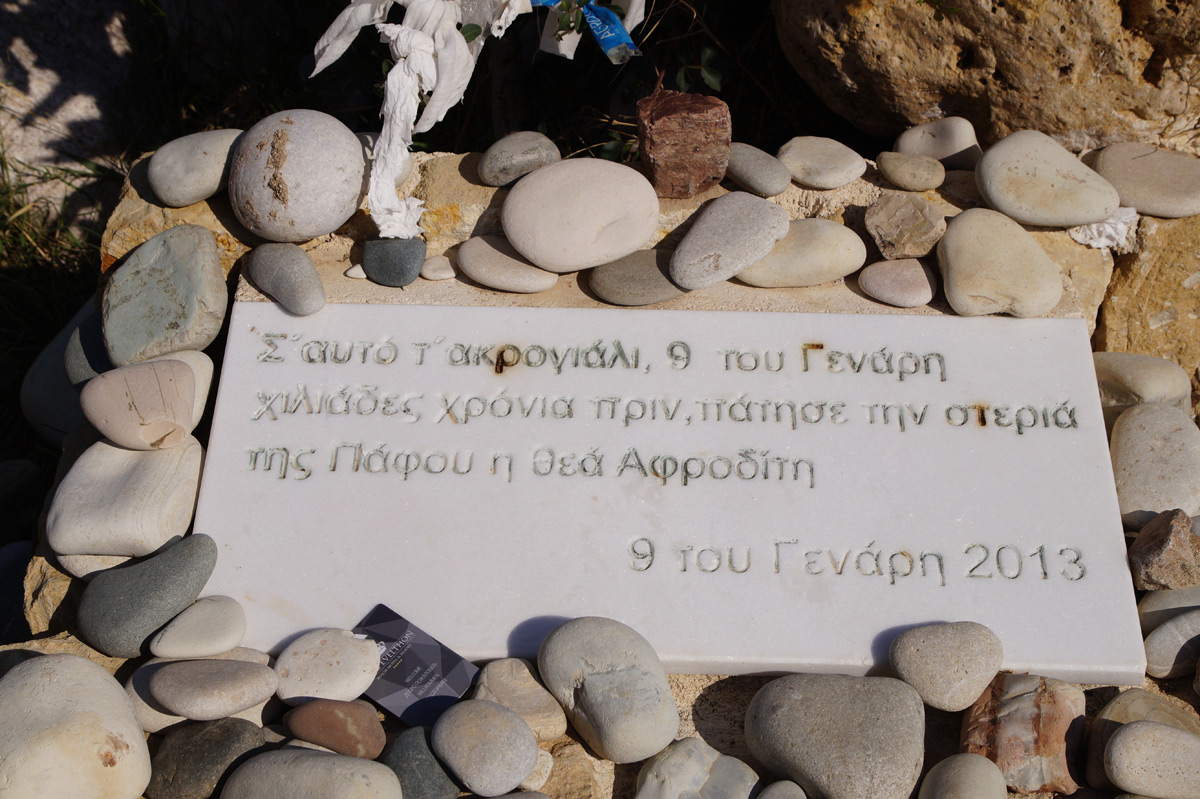 Σ΄αυτό τ΄ακρογιάλι, 9 του Γενάρη
χιλιάδες χρόνια πριν,πάτησε την στεριά
της Πάφου η θεά Αφροδίτη
9 του Γενάρη 2013
EVELTHON